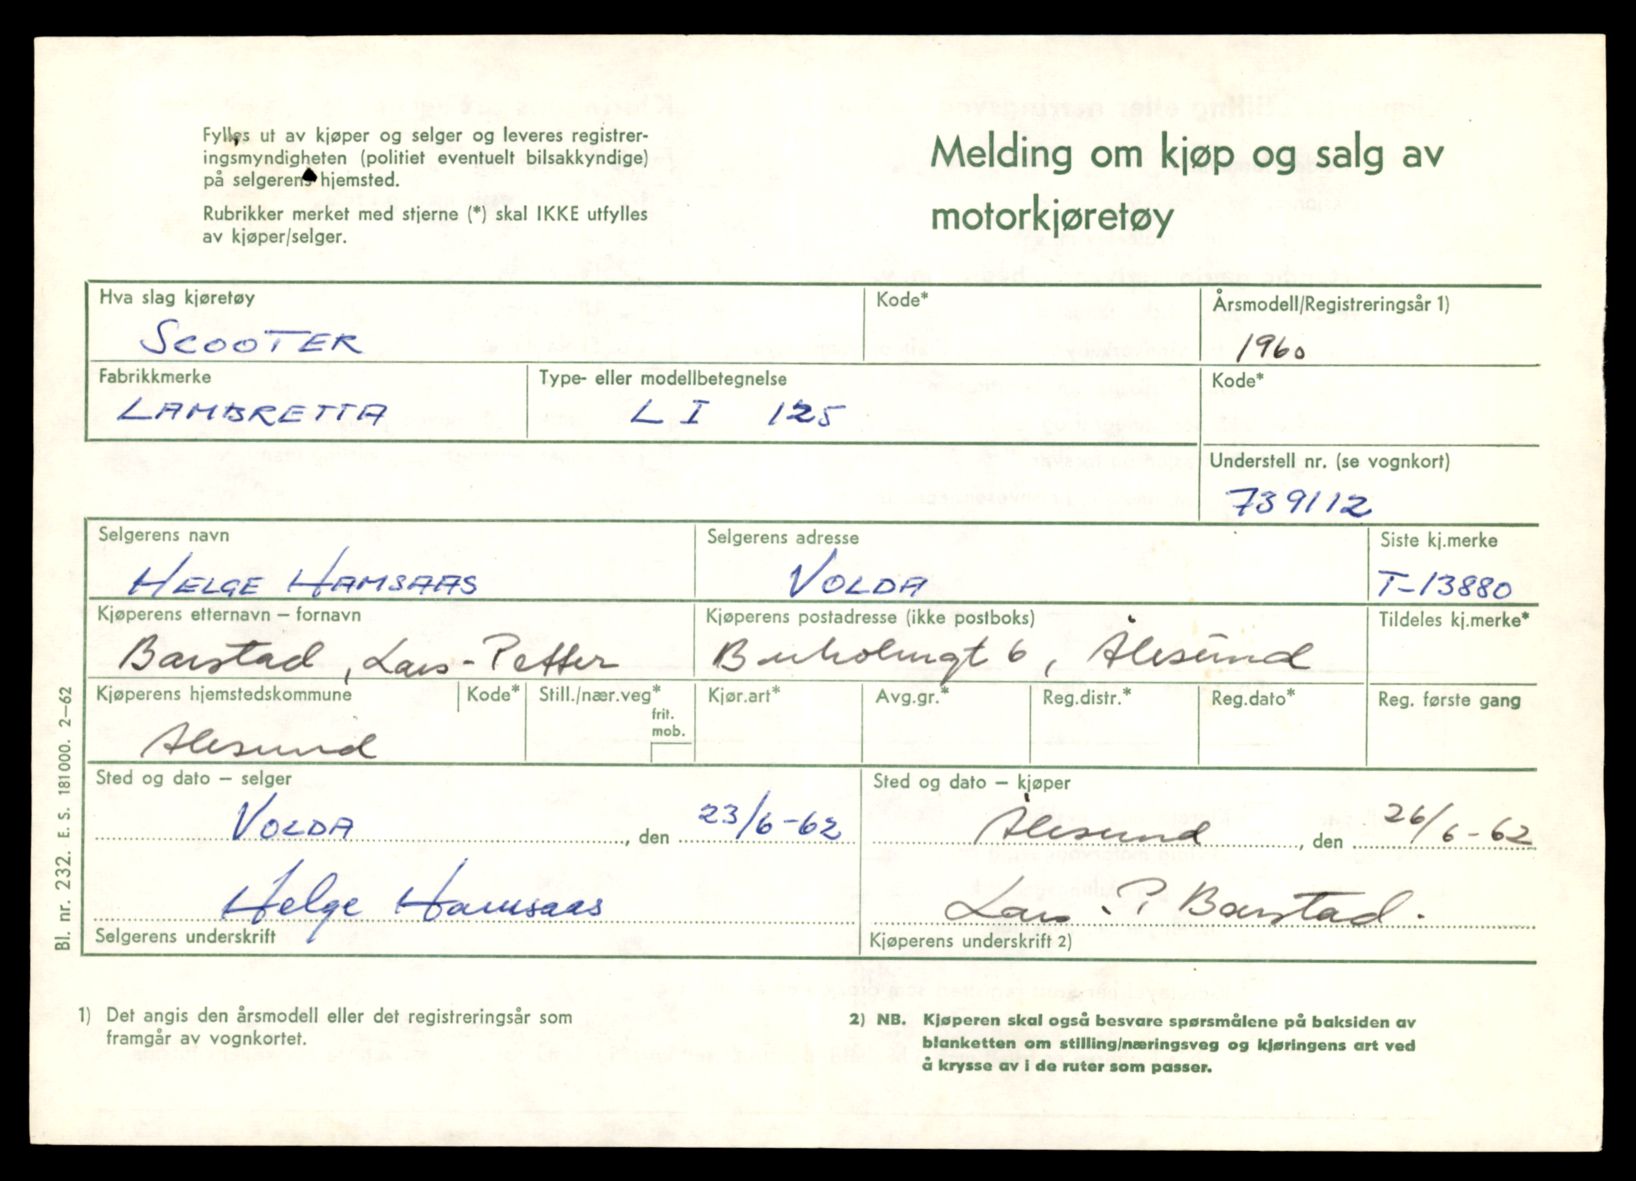 Fylles ut av kjøper og selger og leveres registrer-
ingsmyndigheten (politiet eventuelt bilsakkyndige)
på selgerens hjemsted.
Rubrikker merket med stjerne (*) skal IKKE utfylles
av kjøper/selger.
Melding om kjøp og salg av
motorkjøretøy
Hva slag kjøretøy
SCOOTER
Kode*
Årsmodell/Registreringsår 1)
1960
Fabrikkmerke
LAMBRETTA
Type- eller modellbetegnelse
LI 125
Kode*
Understell nr. (se vognkort)
739112
Selgerens navn
HELGE HAMSAAS
Selgerens adresse
VOLDA
Siste kj.merke
T-13880
Kjøperens etternavn – fornavn
Barstad, Lars-Petter
Kjøperens postadresse (ikke postboks)
6, Ålesund
Tildeles kj.merke*
Kjøperens hjemstedskommune
Ålesund
Kode*
Still./nær.veg*
frit.
mob.
Kjør.art*
Avg.gr.*
Reg.distr.*
Reg.dato*
Reg. første gang
Sted og dato – selger
VOLDA, den 23/6-62
Sted og dato – kjøper
Ålesund, den 26/6-62
Helge Hamsaas
Selgerens underskrift
Lars P. Barstad.
Kjøperens underskrift 2)
Bl. nr. 232. E. S. 181000. 2–62
1) Det angis den årsmodell eller det registreringsår som
framgår av vognkortet.
2) NB. Kjøperen skal også besvare spørsmålene på baksiden av
blanketten om stilling/næringsveg og kjøringens art ved
å krysse av i de ruter som passer.